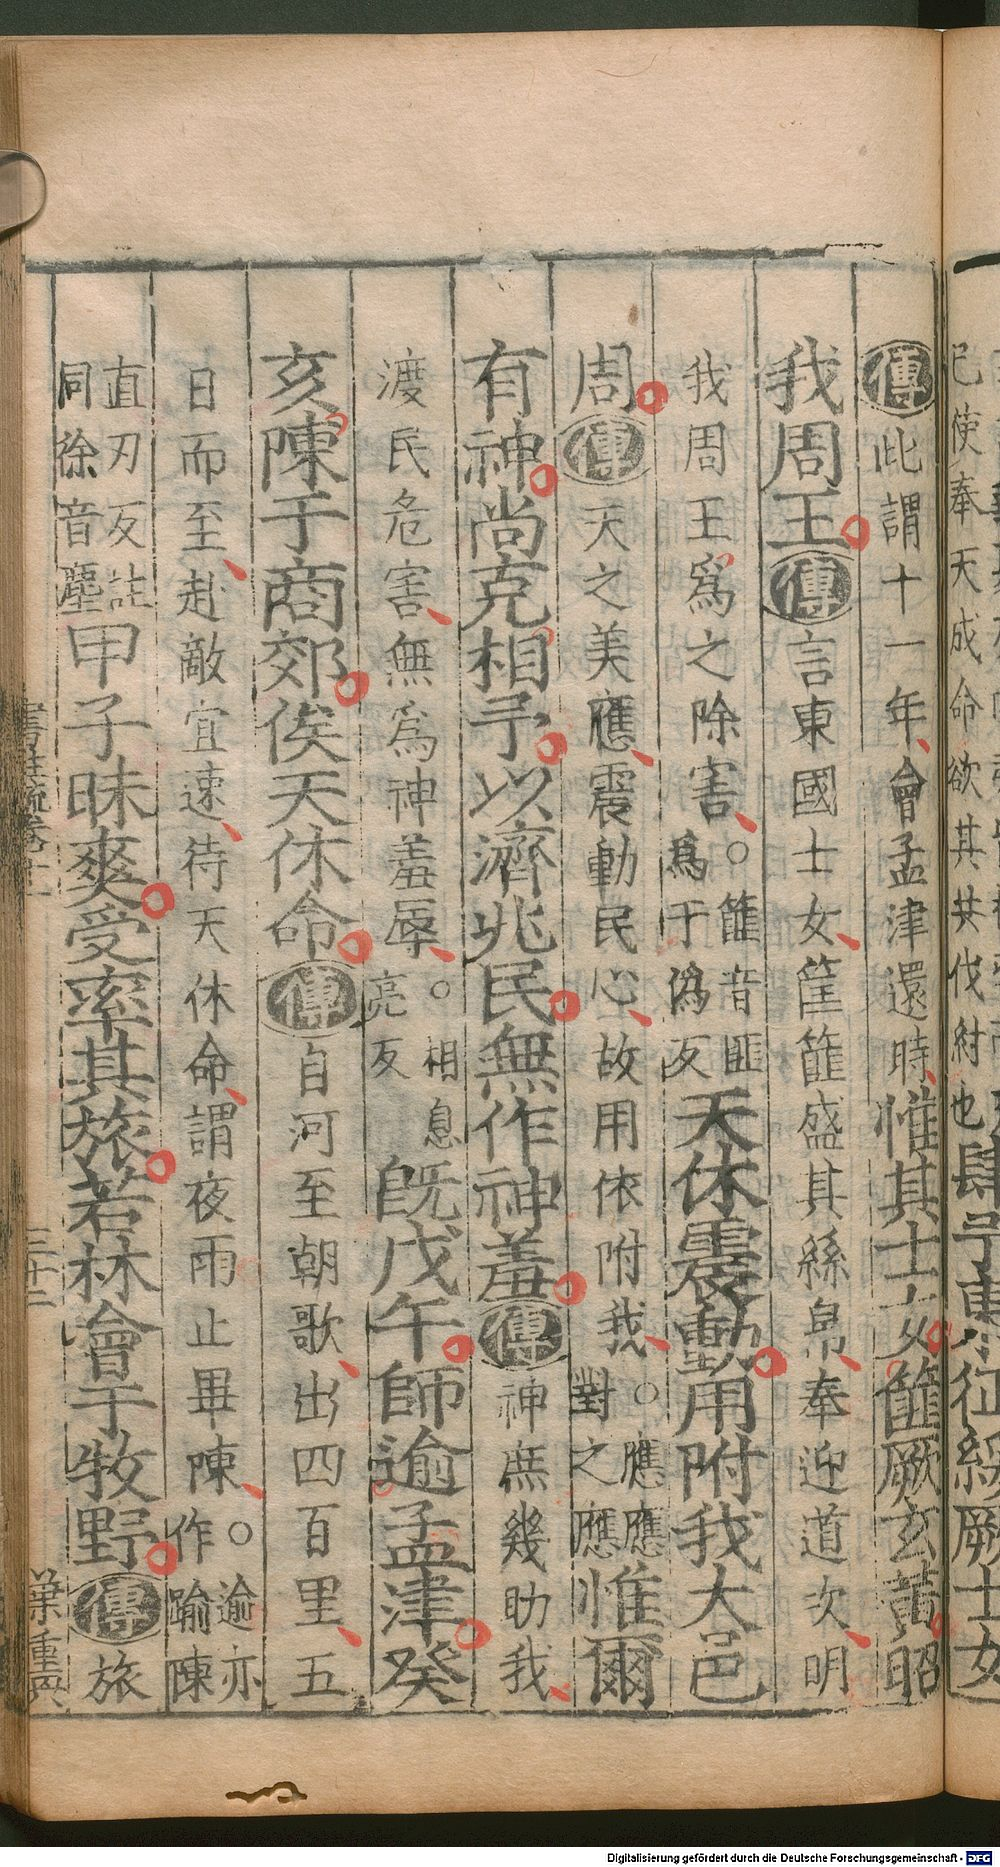 已使奉天成命欲其共伐紂也肆予東征綏厥士女
傳此謂十一年會孟津還時惟其士女篚厥玄黃昭
我周王傳言東國士女筐篚盛其絲帛奉迎道次明
我周王爲之除害○篚音匪爲于僞反天休震動用附我大邑
周傳天之美應震動民心故用依附我○應應對之應惟爾
有神尚克相予以濟兆民無作神羞傳神庶幾助我
渡民危害無爲神羞辱○相息亮反既戊午師逾孟津癸
亥陳于商郊俟天休命傳自河至朝歌出四百里五
日而至赴敵宜速待天休命謂夜雨止畢陳○逾亦作踰陳
直刃反註同徐音塵甲子昧爽受率其旅若林會于牧野傳旅
書註疏卷十一
三十二
葉重興
Digitalisierung gefördert durch die Deutsche Forschungsgemeinschaft - DFG